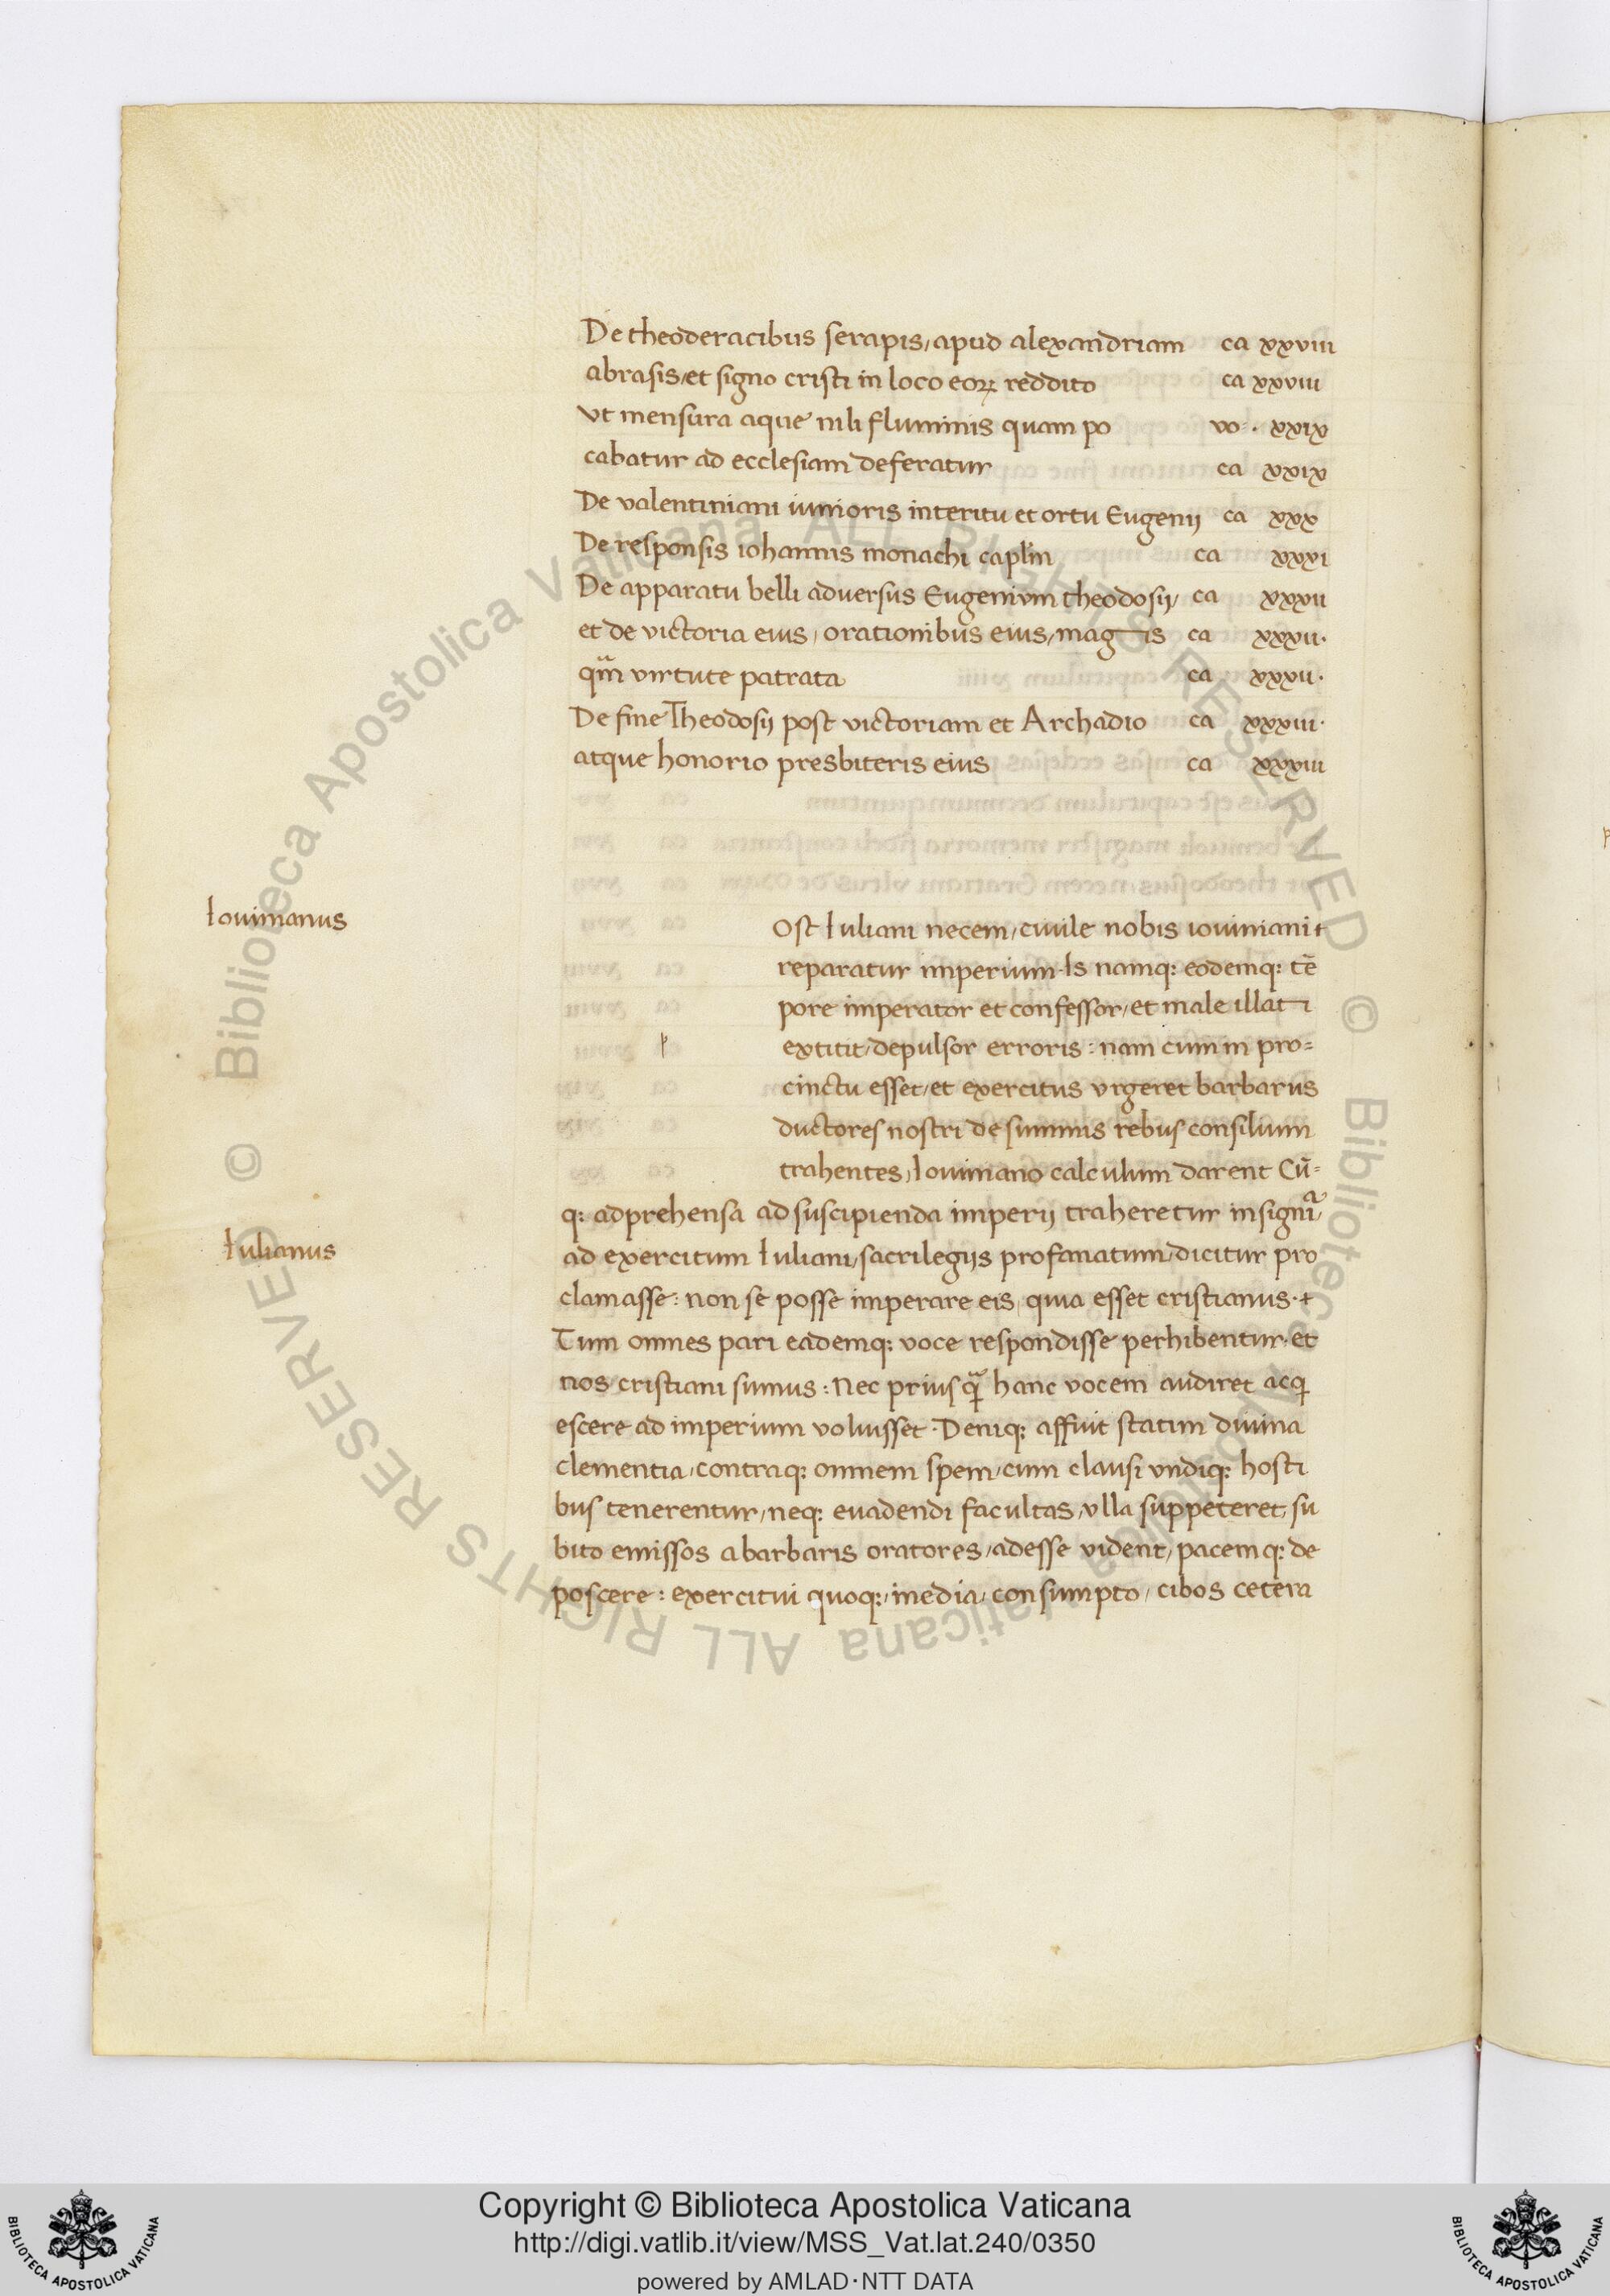 De theoderacibus serapis, apud alexandriam ca xxviii
abrasis, et signo cristi in loco eoꝝ reddito ca xxviii
vt mensura aque nili fluminis quam po vo . xxix
cabatur ad ecclesiam deferatur ca xxix
De valentiniani iunioris interitu et ortu Eugenij ca xxx
De responsis iohannis monachi ca xxxi
De apparatu belli adversus Eugenivm theodosij, ca xxxii
et de victoria eius, orationibus eius, magis ca xxxii.
qm̄ virtute patrata ca xxxii.
De fine Theodosij post victoriam et Archadio ca xxxiii.
atque honorio presbiteris eius ca xxxiii
Iouimanus
ost Iuliani necem, ciuile nobis iouiniani
reparatur imperium. Is namq: eodemq: tē
pore imperator et confessor, et male illati
p extitit, depulsor erroris: nam cum in pro=
cinctu esset, et exercitus vrgeret barbarus
ductores nostri de summis rebus consilium
trahentes, Iouimano calculum darent Cū=
q: adprehensa ad suscipienda imperij traheretur insignia,
Iulianus
ad exercitum Iuliani, sacrilegijs profanatum, dicitur pro
clamasse: non se posse imperare eis, quia esset cristianus.
Tum omnes pari eademq: voce respondisse perhibentur. et
nos cristiani sumus: Nec prius qᵃ hanc vocem audiret acqi
escere ad imperium voluisset. Deniq: affuit statim diuina
clementia, contraq: omnem spem, cum clausi vndiq: hosti
bus tenerentur, neq: euadendi facultas, vlla suppeteret, su
bito emissos a barbaris oratores, adesse vident, pacemq: de
poscere: exercitui quoq:, media, consumpto, cibos cetera
Copyright © Biblioteca Apostolica Vaticana
http://digi.vatlib.it/view/MSS_Vat.lat.240/0350
powered by AMLAD·NTT DATA
BIBLIOTECA APOSTOLICA VATICANA
BIBLIOTECA APOSTOLICA VATICANA
© Biblioteca Apostolica Vaticana ALL RIGHTS RESERVED © Biblioteca Apostolica Vaticana ALL RIGHTS RESERVED